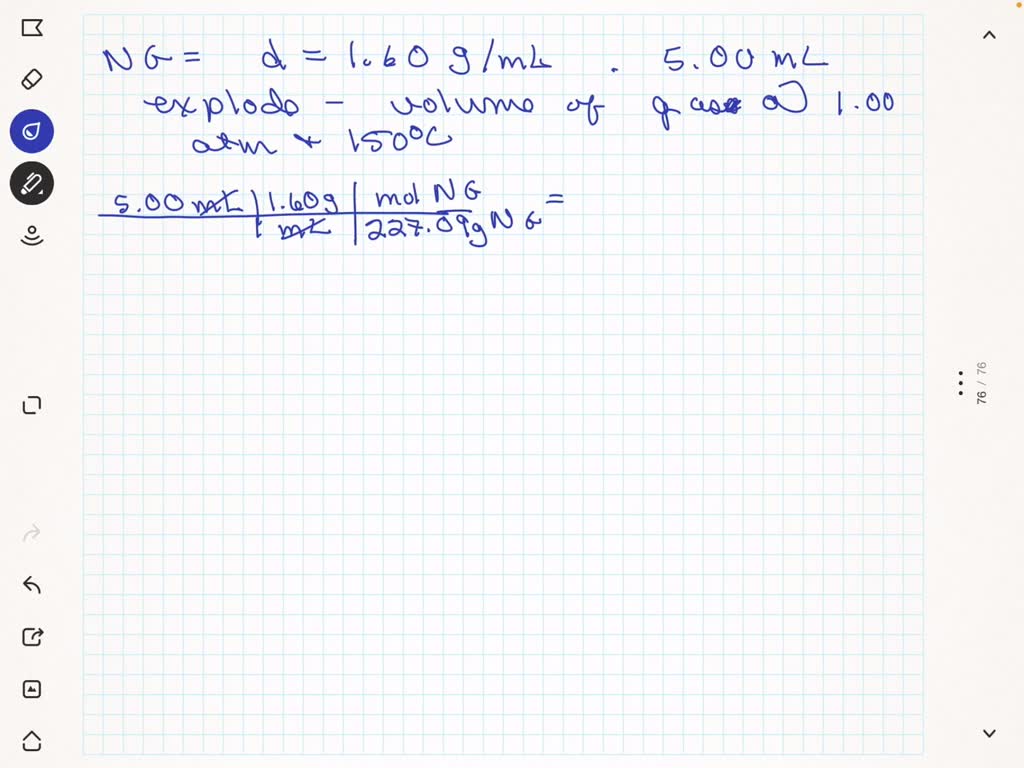 NG = d = 1.60 g/mL . 5.00 mL
explode - volume of gas @ 1.00
atm + 150°C
5.00 mL | 1.60g | mol NG =
| mL | 227.09g NG
76 / 76